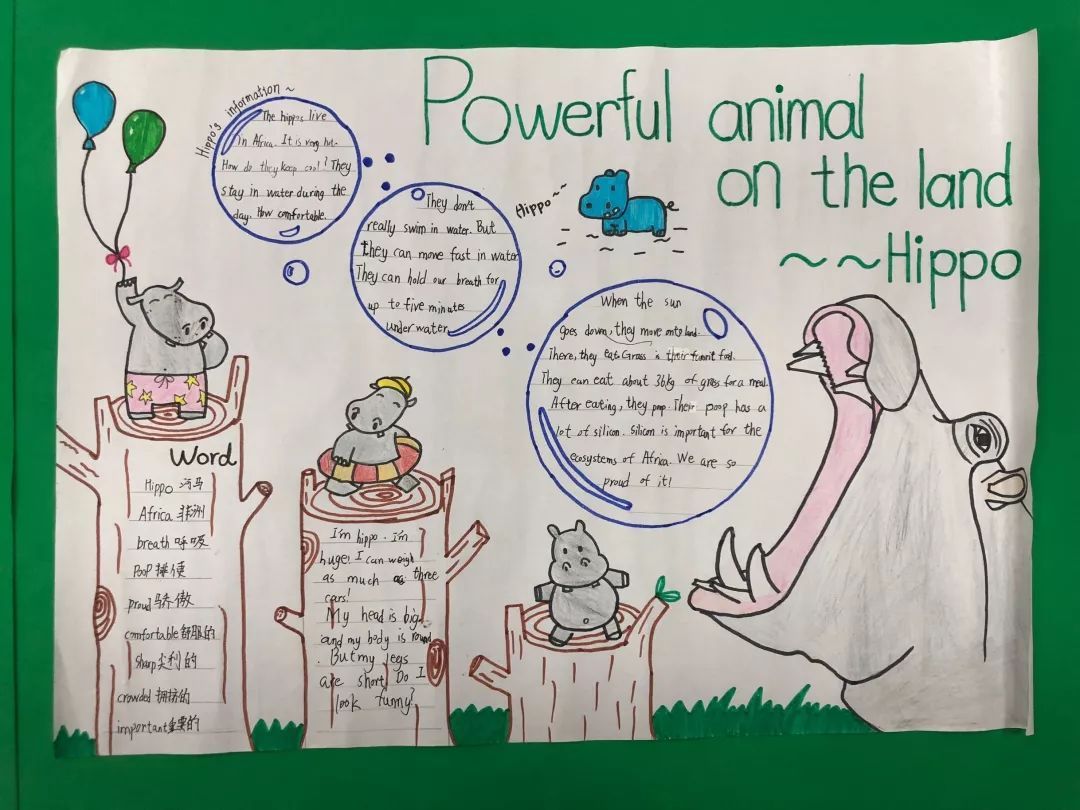 Powerful animal
on the land
~~Hippo
Hippo's information~
The hippos live
in Africa. It is very hot.
How do they keep cool? They
stay in water during the
day. How comfortable.
They don't
really swim in water. But
they can move fast in water
They can hold our breath for
up to five minutes
under water
Hippo~~
When the sun
goes down, they move onto land.
There, they eat. Grass is their food.
They can eat about 36kg of grass for a meal.
After eating, they poop. Their poop has a
lot of silicon. Silicon is important for the
ecosystems of Africa. We are so
proud of it!
Word
Hippo 河马
Africa 非洲
breath 呼吸
Poop 排便
proud 骄傲
comfortable 舒服的
Sharp 尖利的
crowded 拥挤的
important 重要的
I'm hippo. I'm
huge! I can weigh
as much as three
cars!
My head is big
and my body is round
. But my legs
are short. Do I
look funny?